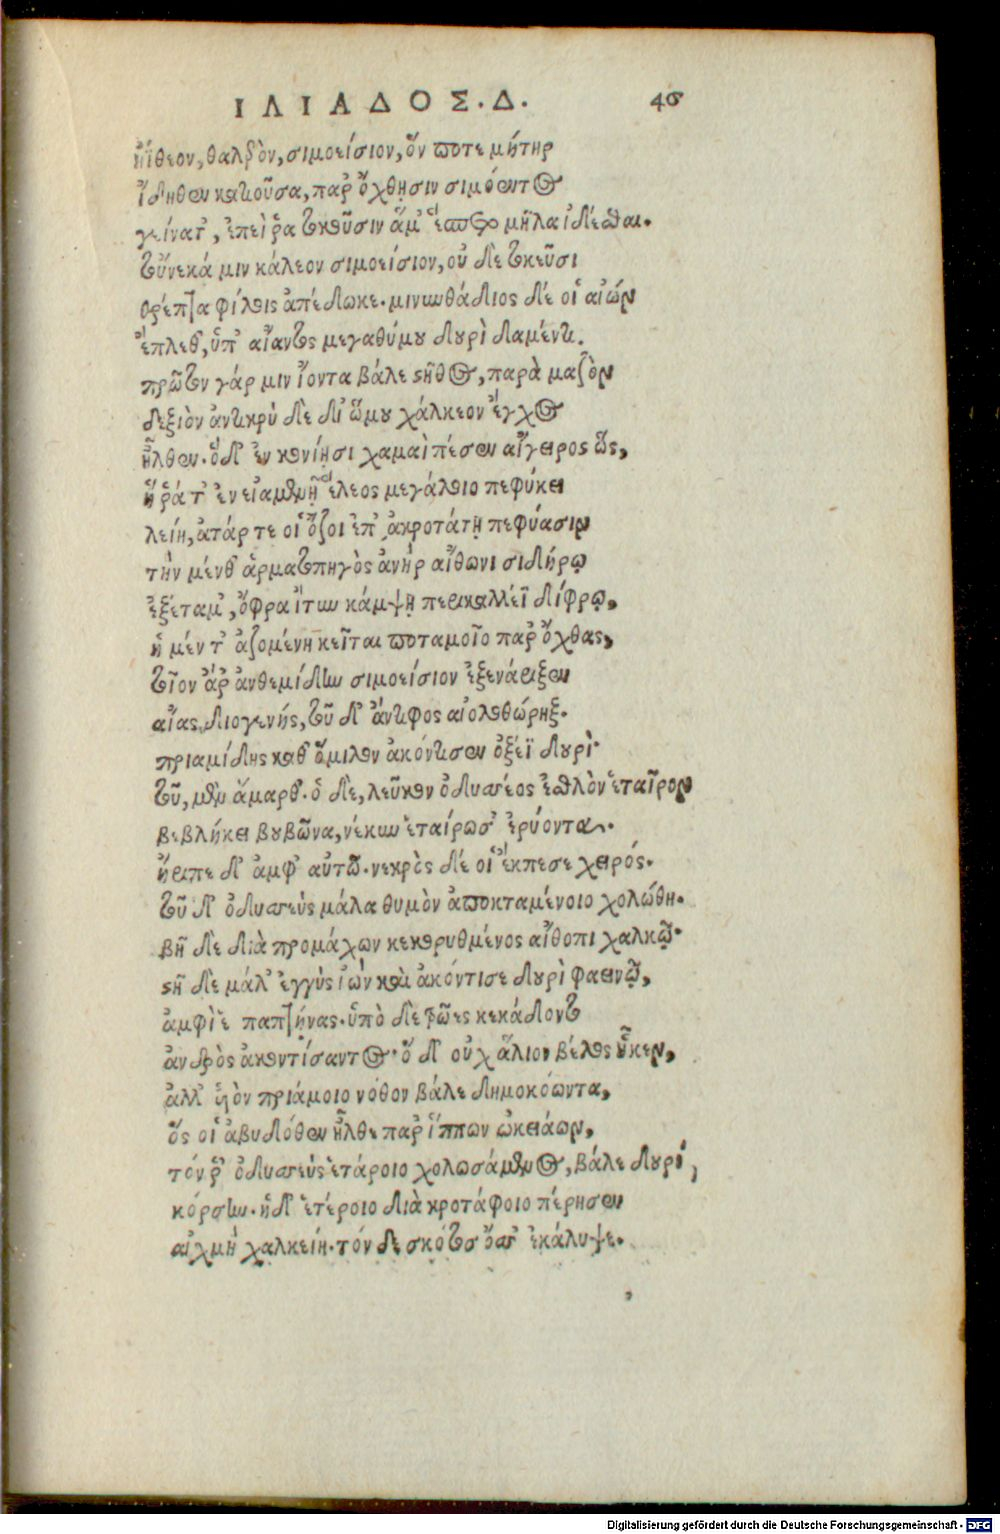 ΙΛΙΑΔΟΣ. Δ.
ἠΐθεον, θαλερὸν, σιμοείσιον, ὅν ποτε μήτηρ
ἴδηθεν κατιοῦσα, παρ᾽ ὄχθησιν σιμόεντος
γείνατ᾽, ἐπεί ῥα τοκεῦσιν ἅμ᾽ ἕσπετο μῆλα ἰδέσθαι.
τοὔνεκά μιν κάλεον σιμοείσιον, οὐ δὲ τοκεῦσι
θρέπτρα φίλοις ἀπέδωκε. μινυνθάδιος δέ οἱ αἰών
ἔπλεθ᾽, ὑπ᾽ αἴαντος μεγαθύμου δουρὶ δαμέντι.
πρῶτον γάρ μιν ἰόντα βάλε στῆθος, παρὰ μαζὸν
δεξιὸν ἀντικρὺ δὲ δι᾽ ὤμου χάλκεον ἔγχος
ἦλθεν. ὁ δ᾽ ἐν κονίησι χαμαὶ πέσεν αἴγειρος ὣς,
ἥ ῥά τ᾽ ἐν εἱαμενῇ ἕλεος μεγάλοιο πεφύκει
λείη, ἀτάρ τε οἱ ὄζοι ἐπ᾽ ἀκροτάτῃ πεφύασιν
τὴν μένθ᾽ ἁρματοπηγὸς ἀνὴρ αἴθωνι σιδήρῳ
ἐξέταμ᾽, ὄφρα ἴτυν κάμψῃ περικαλλέϊ δίφρῳ,
ἡ μέν τ᾽ ἀζομένη κεῖται ποταμοῖο παρ᾽ ὄχθας,
τοῖον ἄρ᾽ ἀνθεμίδην σιμοείσιον ἐξενάριξεν
αἴας διογενής, τοῦ δ᾽ ἄντιφος αἰολοθώρηξ.
πριαμίδης καθ᾽ ὅμιλον ἀκόντισεν ὀξέϊ δουρὶ·
τοῦ, μὲν ἅμαρθ᾽. ὁ δὲ, λεῦκον ὀδυσσέος ἐσθλὸν ἑταῖρον
βεβλήκει βουβῶνα, νέκυν ἑτάρωσ᾽ ἐρύοντα.
ἤριπε δ᾽ ἀμφ᾽ αὐτῷ. νεκρὸς δέ οἱ ἔκπεσε χειρός.
τοῦ δ᾽ ὀδυσσεὺς μάλα θυμὸν ἀποκταμένοιο χολώθη.
βῆ δὲ διὰ προμάχων κεκορυθμένος αἴθοπι χαλκῷ.
στῆ δὲ μάλ᾽ ἐγγὺς ἰὼν καὶ ἀκόντισε δουρὶ φαεινῷ,
ἀμφὶ ἓ παπτήνας. ὑπὸ δὲ τρῶες κεκάδοντο
ἀνδρὸς ἀκοντίσαντος· ὁ δ᾽ οὐχ ἅλιον βέλος ἧκεν,
ἀλλ᾽ υἱὸν πριάμοιο νόθον βάλε δημοκόωντα,
ὅς οἱ ἀβυδόθεν ἦλθε παρ᾽ ἵππων ὠκειάων,
τόν ῥ᾽ ὀδυσσεὺς ἑτάροιο χολωσάμενος, βάλε δουρί,
κόρσην. ἡ δ᾽ ἑτέροιο διὰ κροτάφοιο πέρησεν
αἰχμὴ χαλκείη. τόν δε σκότος ὄσσ᾽ ἐκάλυψε.
Digitalisierung gefördert durch die Deutsche Forschungsgemeinschaft - DFG